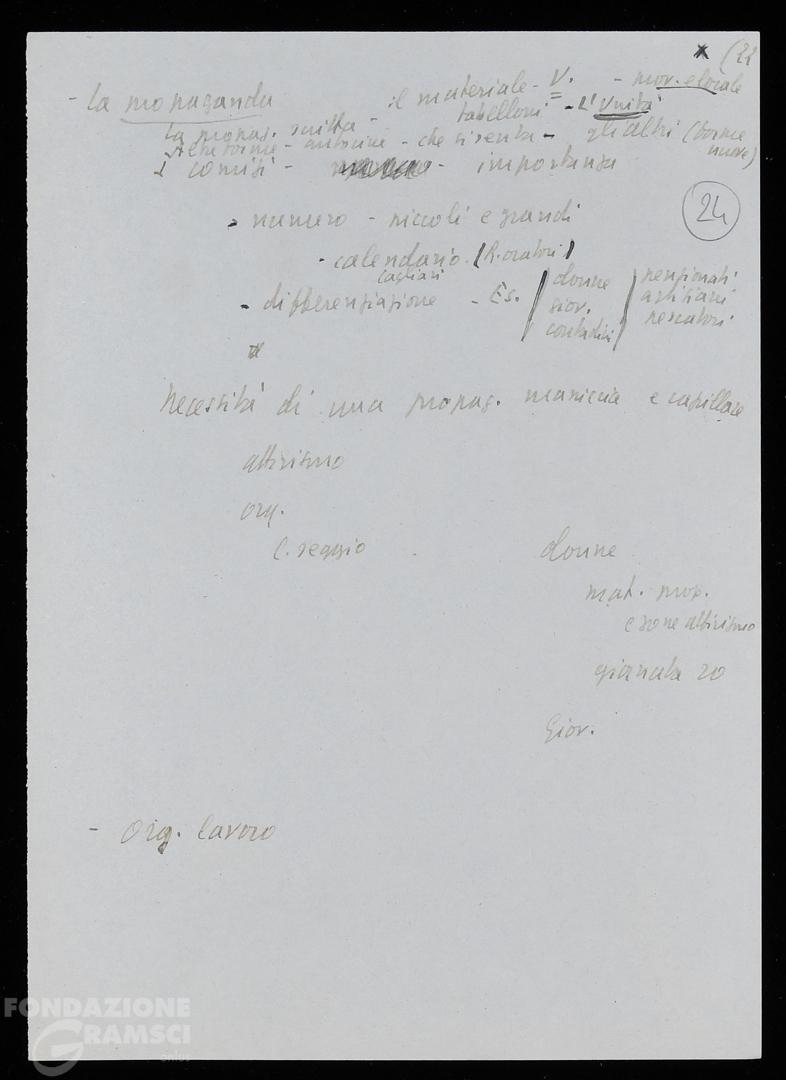 (22
- la propaganda il materiale - V. - prov. e locale
tabelloni - L'Unità
la propag. scritta -
Altre forme - - che si senta - gli altri (forme nuove)
I comizi - importanza
- numero - piccoli e grandi
- calendario. (R. oratori)
cagliari
- differenziazione - Es. donne pensionati
giov. artigiani
contadini pescatori
24
Necessità di una propag. massiccia e capillare
attivismo
org.
C. seggio
donne
mat. prop.
e zone attivismo
giornata 20
Giov.
- Org. lavoro
FONDAZIONE
GRAMSCI
onlus